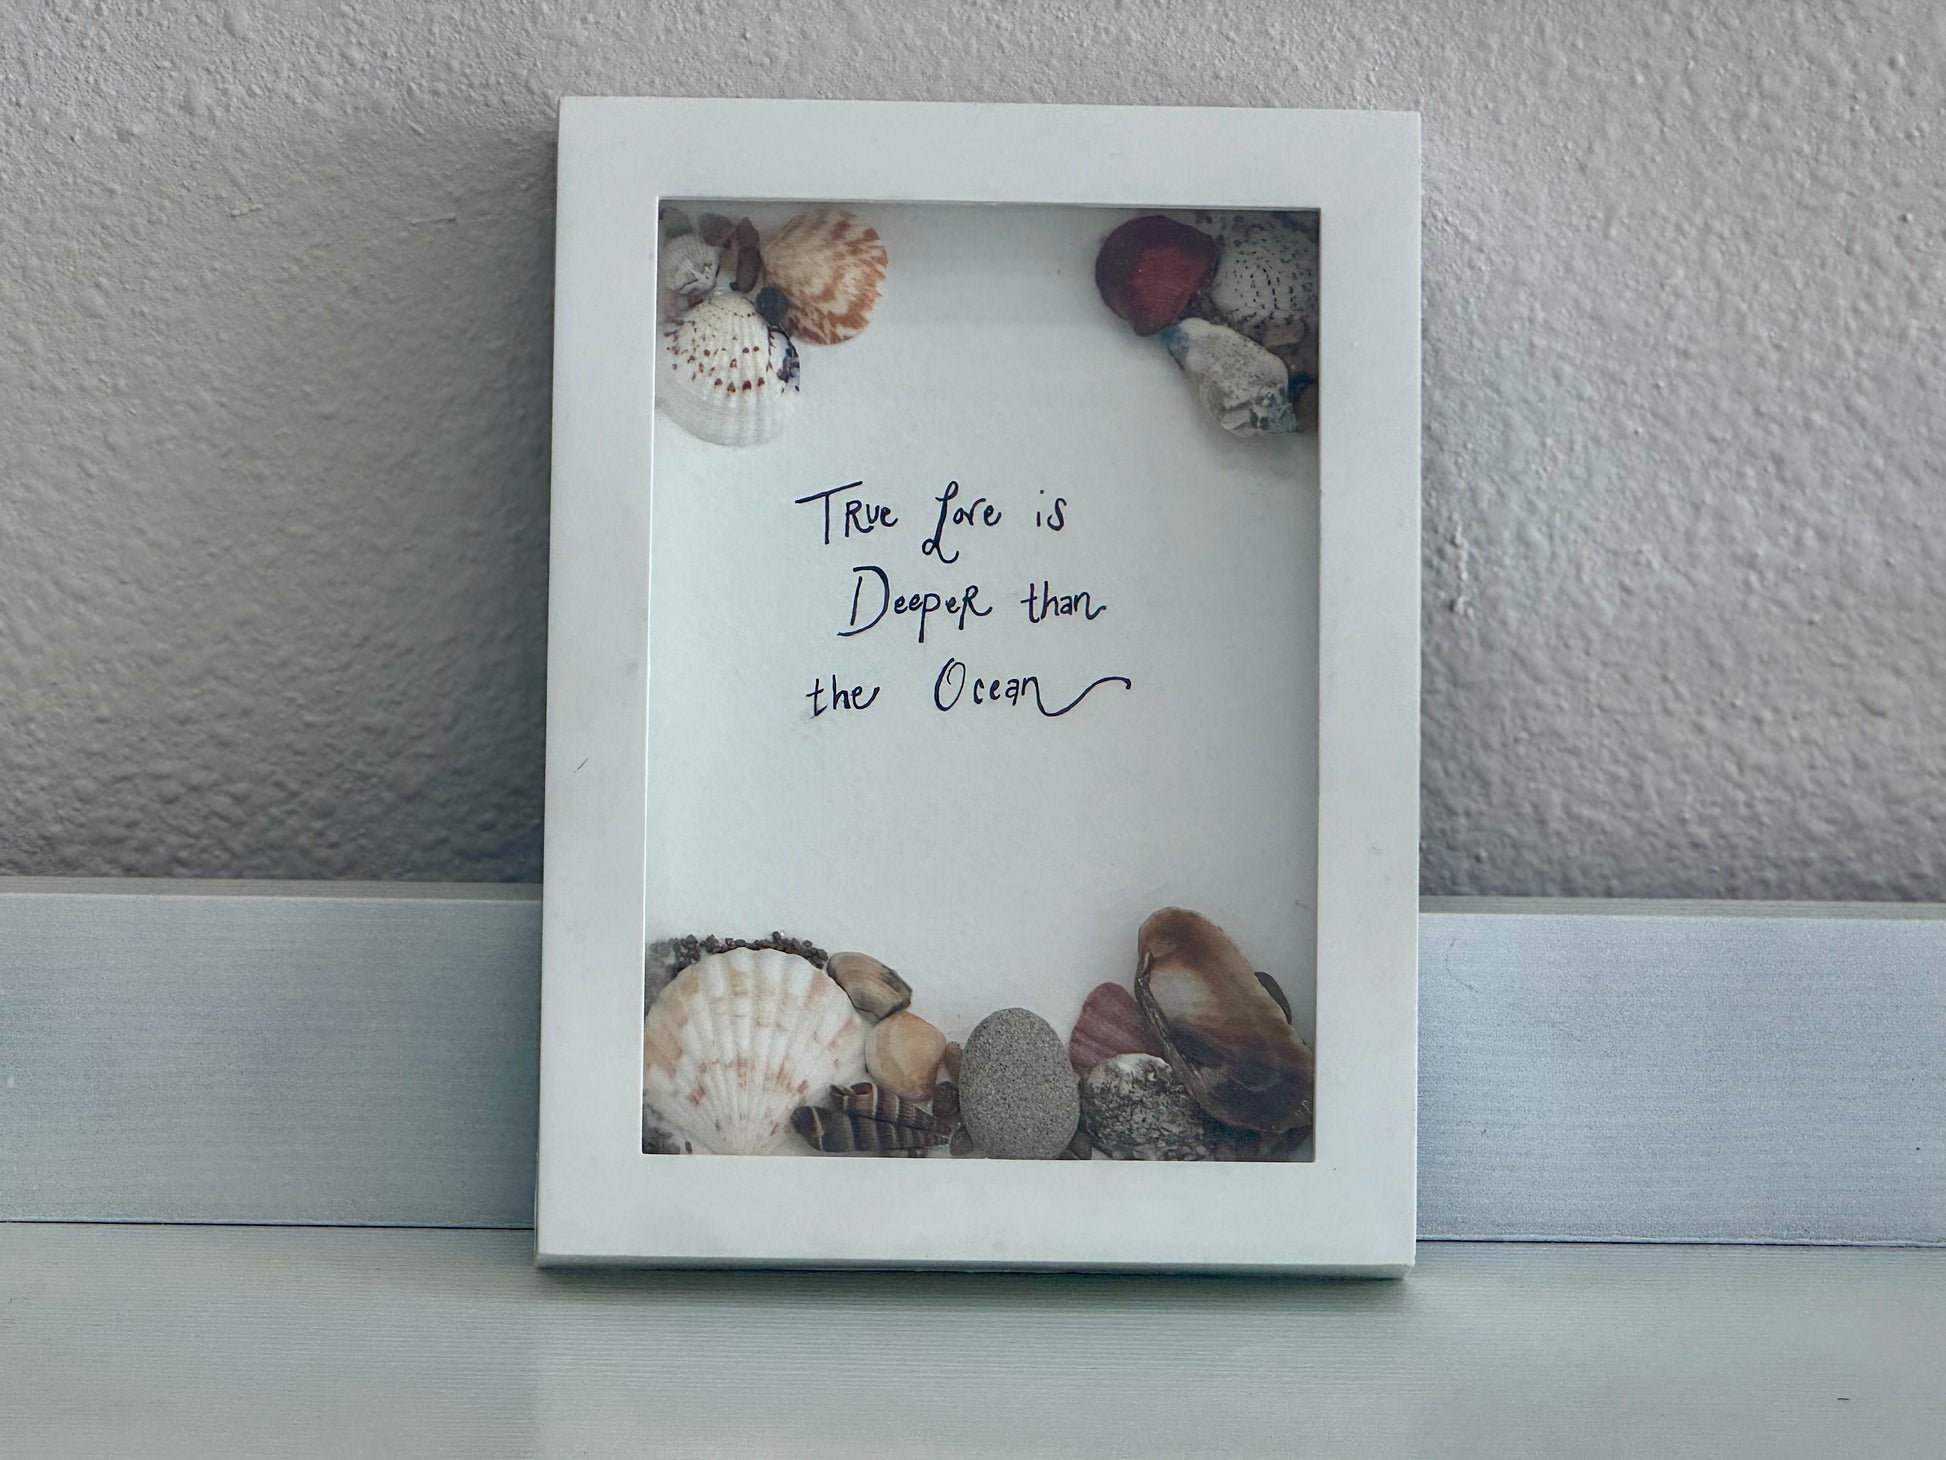 True Love is
Deeper than
the Ocean